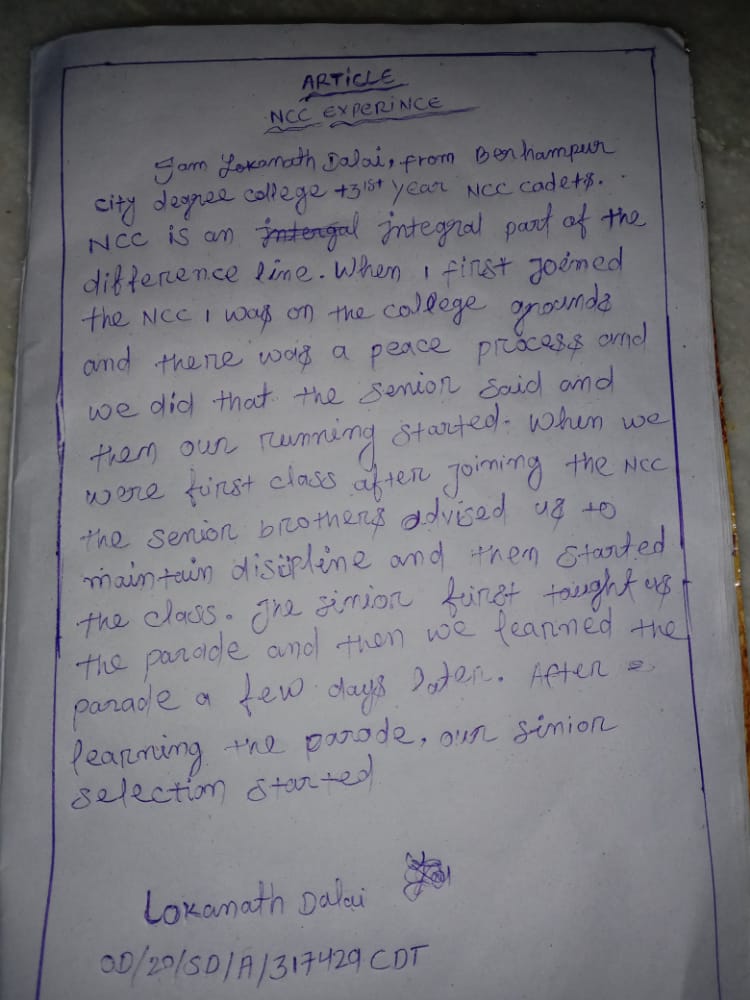 ARTICLE
NCC EXPERINCE
Iam Lokanath Dalai, from Berhampur
city degree college +3 1st year NCC cadets.
NCC is an intergal integral part of the
difference line. When I first joined
the NCC I was on the college grounds
and there was a peace process and
we did that the senior said and
them our running started. When we
were first class after joining the NCC
the senior brothers advised us to
maintain disipline and them started
the class. The sinior first tought us
the parade and then we learned the
parade a few days later. After
learning the parade, our sinior
selection started
Lokanath Dalai
OD/20/SD/A/317429 CDT